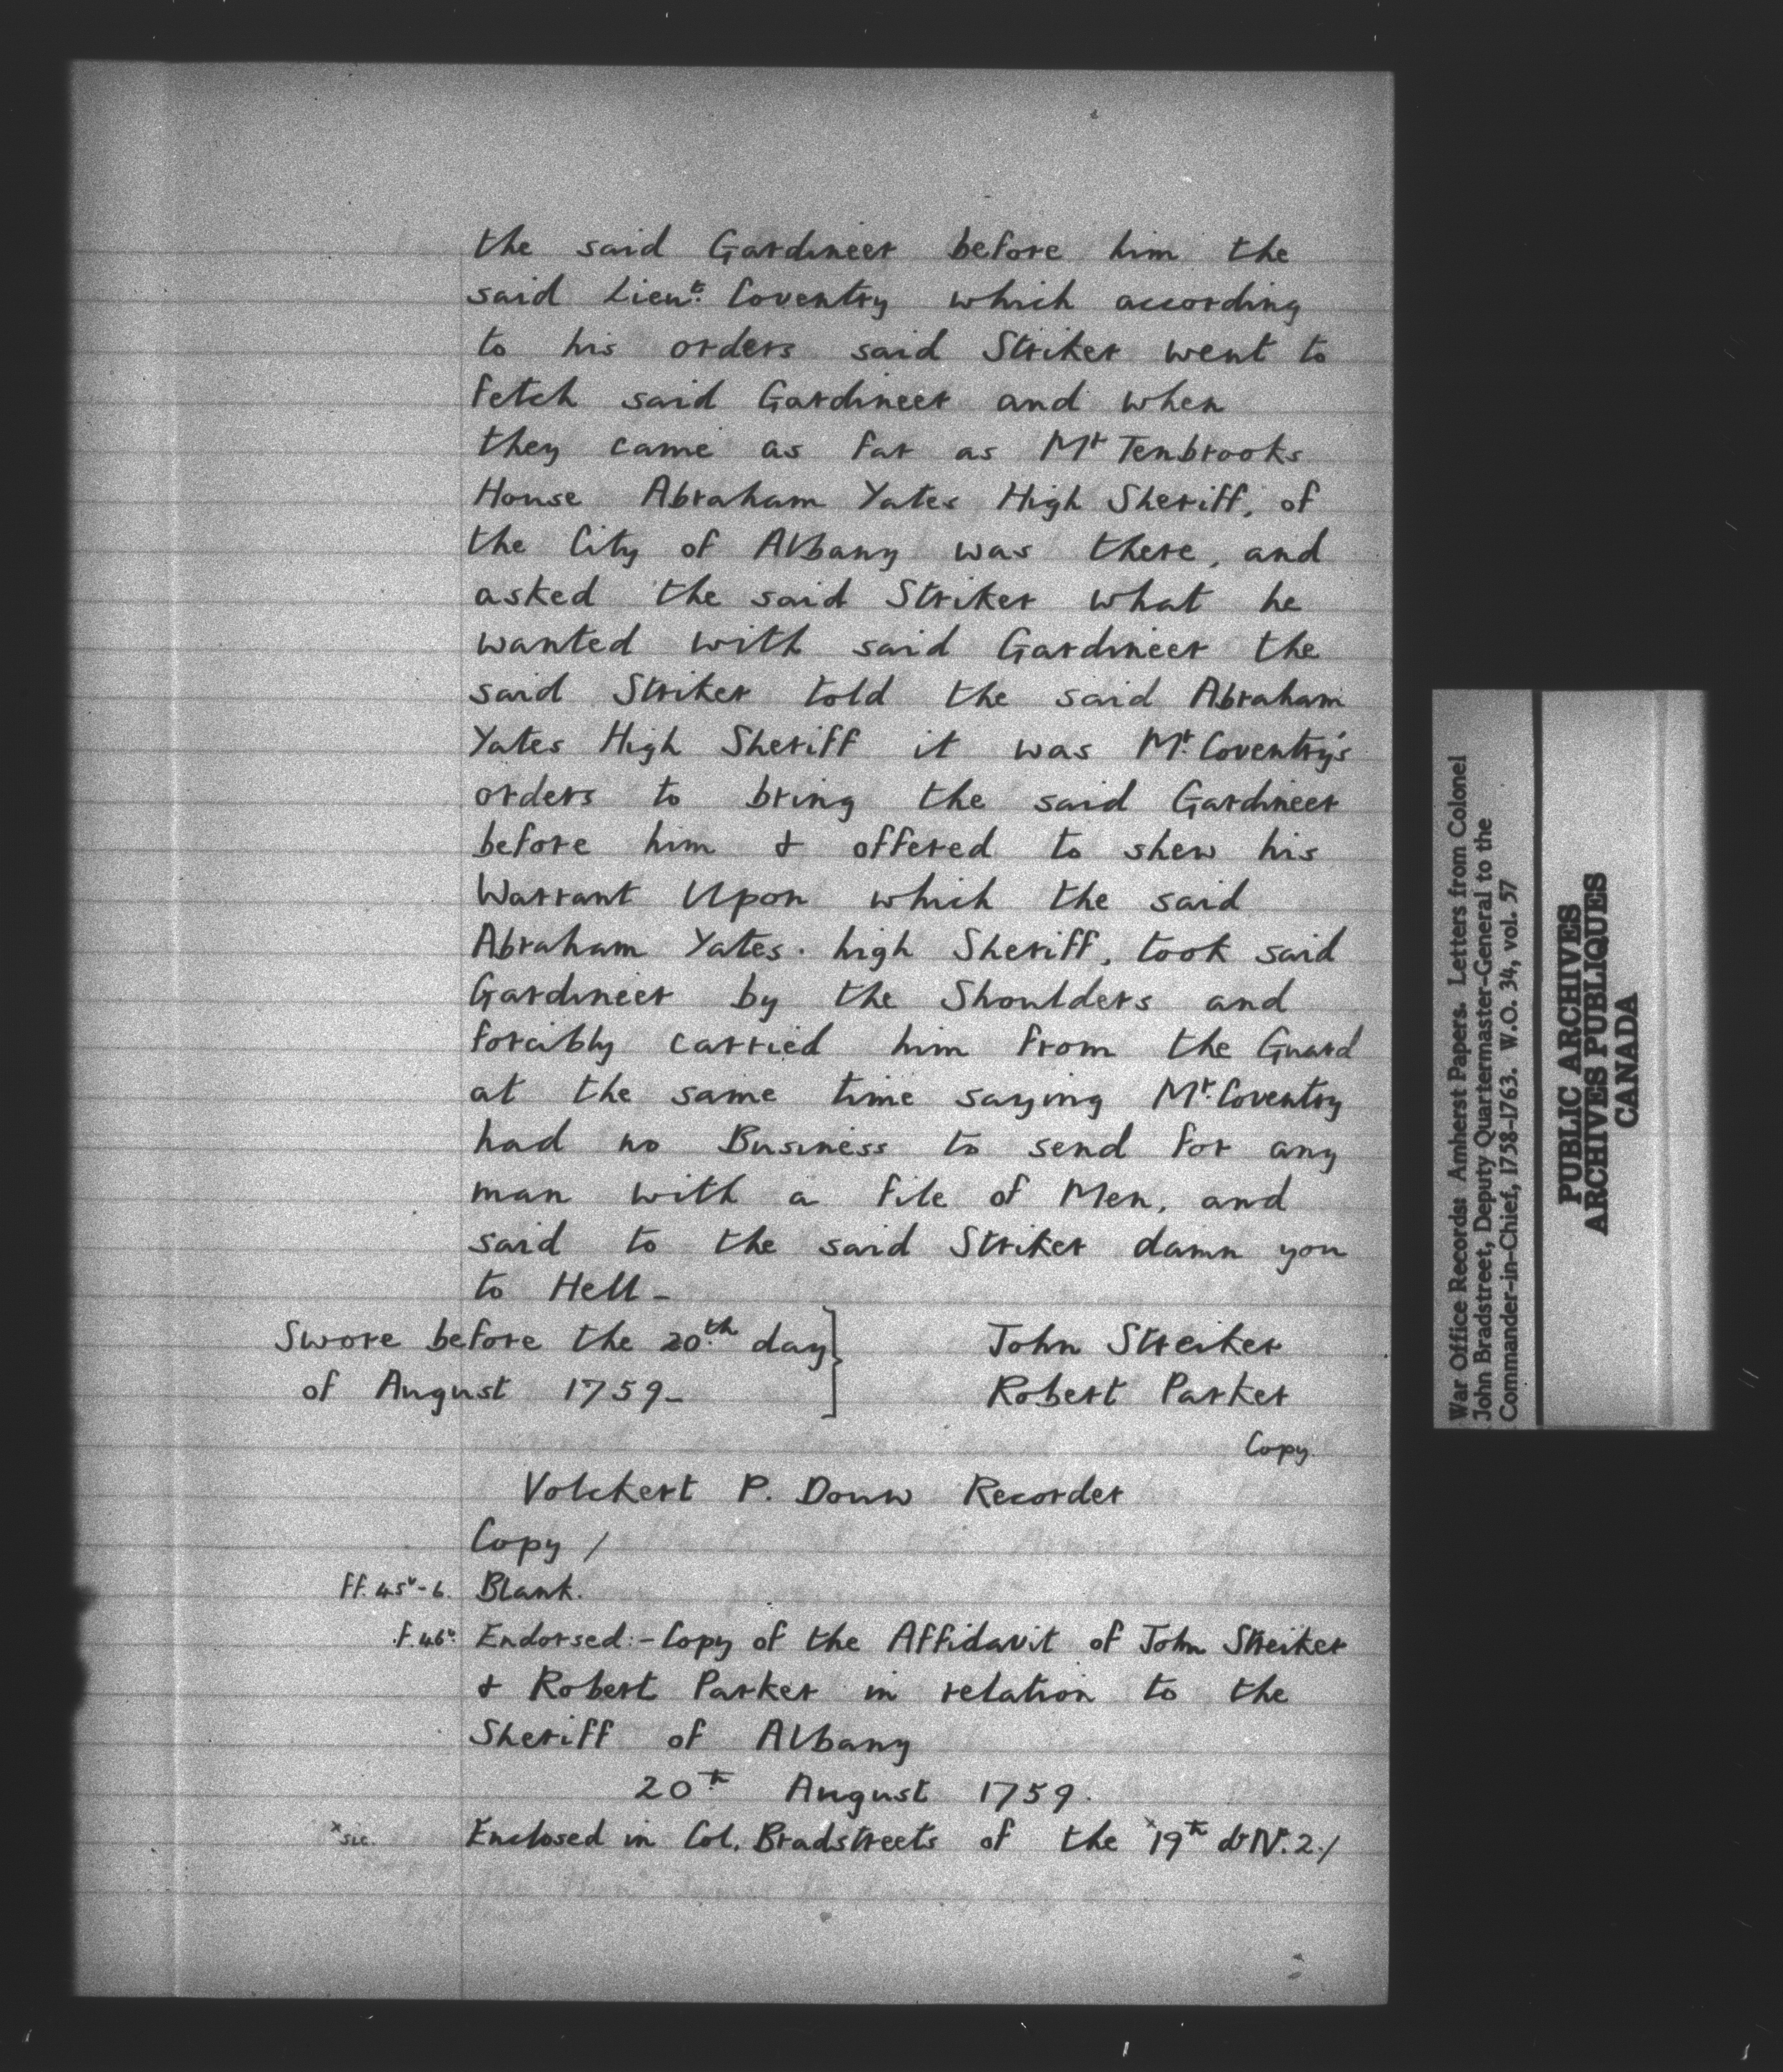 the said Gardineer before him the
said Lieut. Coventry which according
to his orders said Striker went to
fetch said Gardineer and when
they came as far as Mr Tenbrooks
House Abraham Yates High Sheriff, of
the City of Albany was there, and
asked the said Striker what he
wanted with said Gardineer the
said Striker told the said Abraham
Yates High Sheriff it was Mr. Coventry's
orders to bring the said Gardineer
before him & offered to shew his
Warrant Upon which the said
Abraham Yates. high Sheriff, took said
Gardineer by the Shoulders and
forcibly carried him from the Guard
at the same time saying Mr. Coventry
had no Business to send for any
man with a file of Men, and
said to the said Striker damn you
to Hell –
Swore before the 20th day } John Streiker
of August 1759 – Robert Parker
Copy.
Volckert P. Douw Recorder
Copy /
ff. 45v-6. Blank.
f. 46v. Endorsed:- Copy of the Affidavit of John Streiker
& Robert Parker in relation to the
Sheriff of Albany
20th August 1759.
x sic. Enclosed in Col. Bradstreets of the x19th do N. 2./
War Office Records: Amherst Papers. Letters from Colonel
John Bradstreet, Deputy Quartermaster-General to the
Commander-in-Chief, 1758-1763. W.O. 34, vol. 57
PUBLIC ARCHIVES
ARCHIVES PUBLIQUES
CANADA